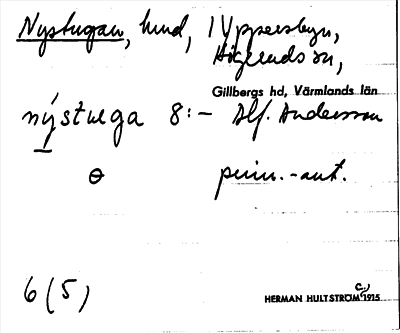 Nystugan, hmd, i Yppersbyn,
Högerudssn,
Gillbergs hd, Värmlands län
nýstuga 8:- Alf. Andersson
prim.-aut.
6(5)
HERMAN HULTSTRÖM C:a 1915